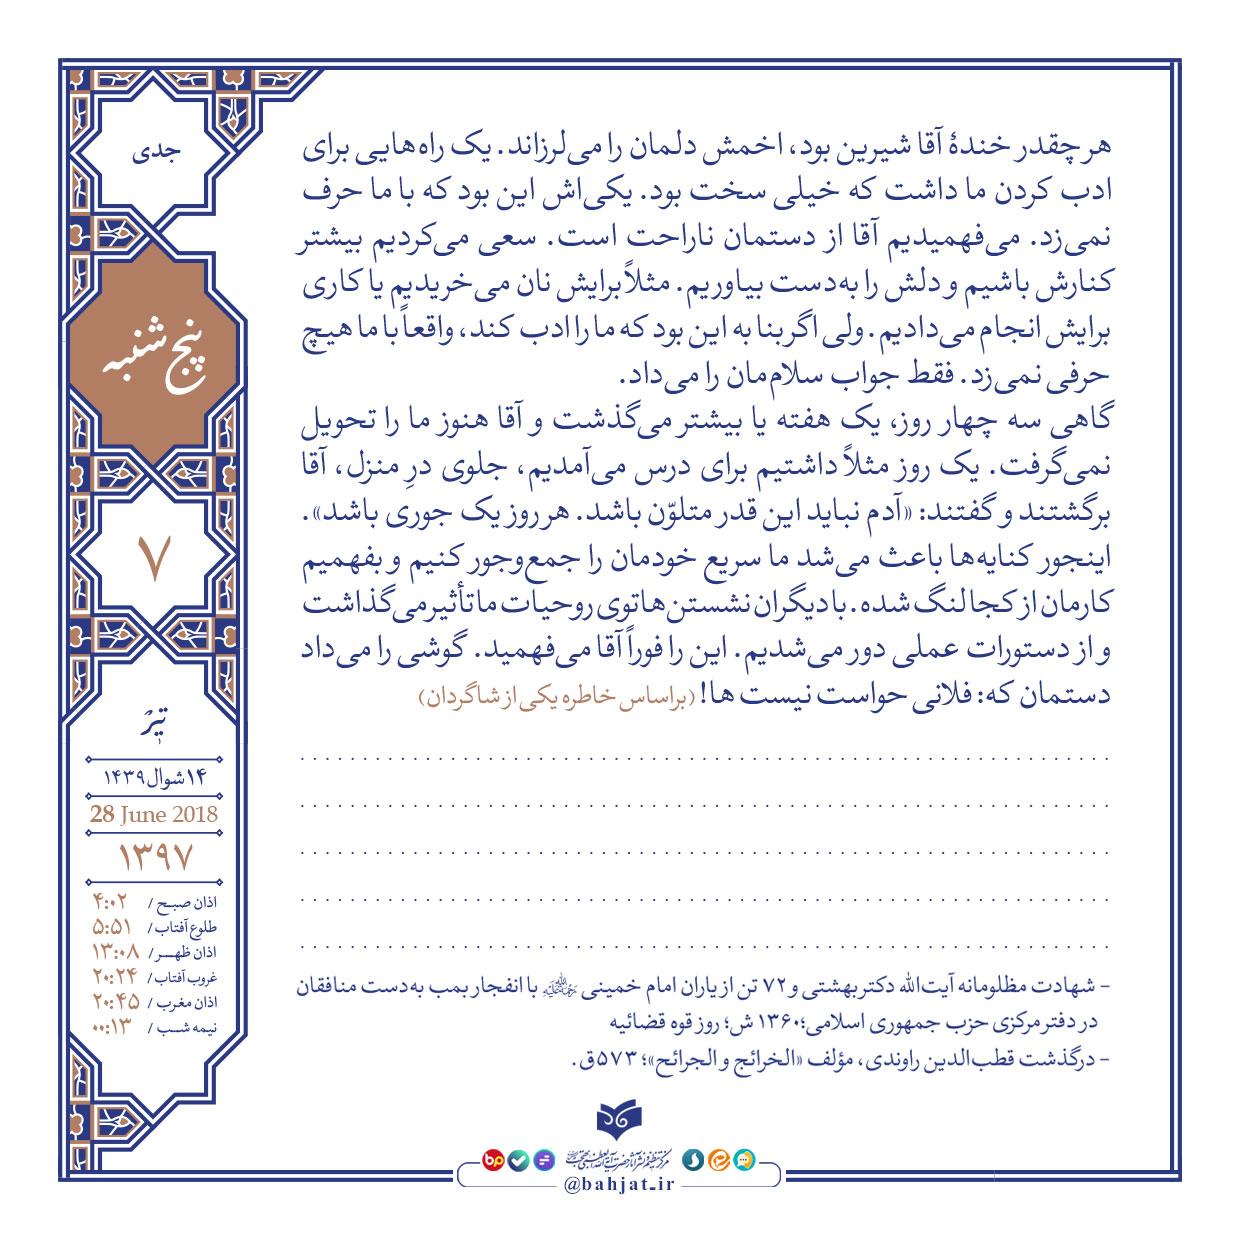 هر چقدر خندهٔ آقا شیرین بود، اخمش دلمان را می‌لرزاند. یک راه‌هایی برای
ادب کردن ما داشت که خیلی سخت بود. یکی‌اش این بود که با ما حرف
نمی‌زد. می‌فهمیدیم آقا از دستمان ناراحت است. سعی می‌کردیم بیشتر
کنارش باشیم و دلش را به‌دست بیاوریم. مثلاً برایش نان می‌خریدیم یا کاری
برایش انجام می‌دادیم. ولی اگر بنا به این بود که ما را ادب کند، واقعاً با ما هیچ
حرفی نمی‌زد. فقط جواب سلام‌مان را می‌داد.
گاهی سه چهار روز، یک هفته یا بیشتر می‌گذشت و آقا هنوز ما را تحویل
نمی‌گرفت. یک روز مثلاً داشتیم برای درس می‌آمدیم، جلوی درِ منزل، آقا
برگشتند و گفتند: «آدم نباید این قدر متلوّن باشد. هر روز یک جوری باشد».
اینجور کنایه‌ها باعث می‌شد ما سریع خودمان را جمع‌وجور کنیم و بفهمیم
کارمان از کجا لنگ شده. با دیگران نشستن‌ها توی روحیات ما تأثیر می‌گذاشت
و از دستورات عملی دور می‌شدیم. این را فوراً آقا می‌فهمید. گوشی را می‌داد
دستمان که: فلانی حواست نیست ها! (براساس خاطره یکی از شاگردان)
- شهادت مظلومانه آیت‌الله دکتر بهشتی و ۷۲ تن از یاران امام خمینی با انفجار بمب به‌دست منافقان
در دفتر مرکزی حزب جمهوری اسلامی؛ ۱۳۶۰ ش؛ روز قوه قضائیه
- درگذشت قطب‌الدین راوندی، مؤلف «الخرائج و الجرائح»؛ ۵۷۳ ق.
جدی
پنج شنبه
۷
تیر
۱۴ شوال ۱۴۳۹
28 June 2018
۱۳۹۷
اذان صبح / ۴:۰۲
طلوع آفتاب / ۵:۵۱
اذان ظهر / ۱۳:۰۸
غروب آفتاب / ۲۰:۲۴
اذان مغرب / ۲۰:۴۵
نیمه شب / ۰۰:۱۳
bp
@bahjat.ir